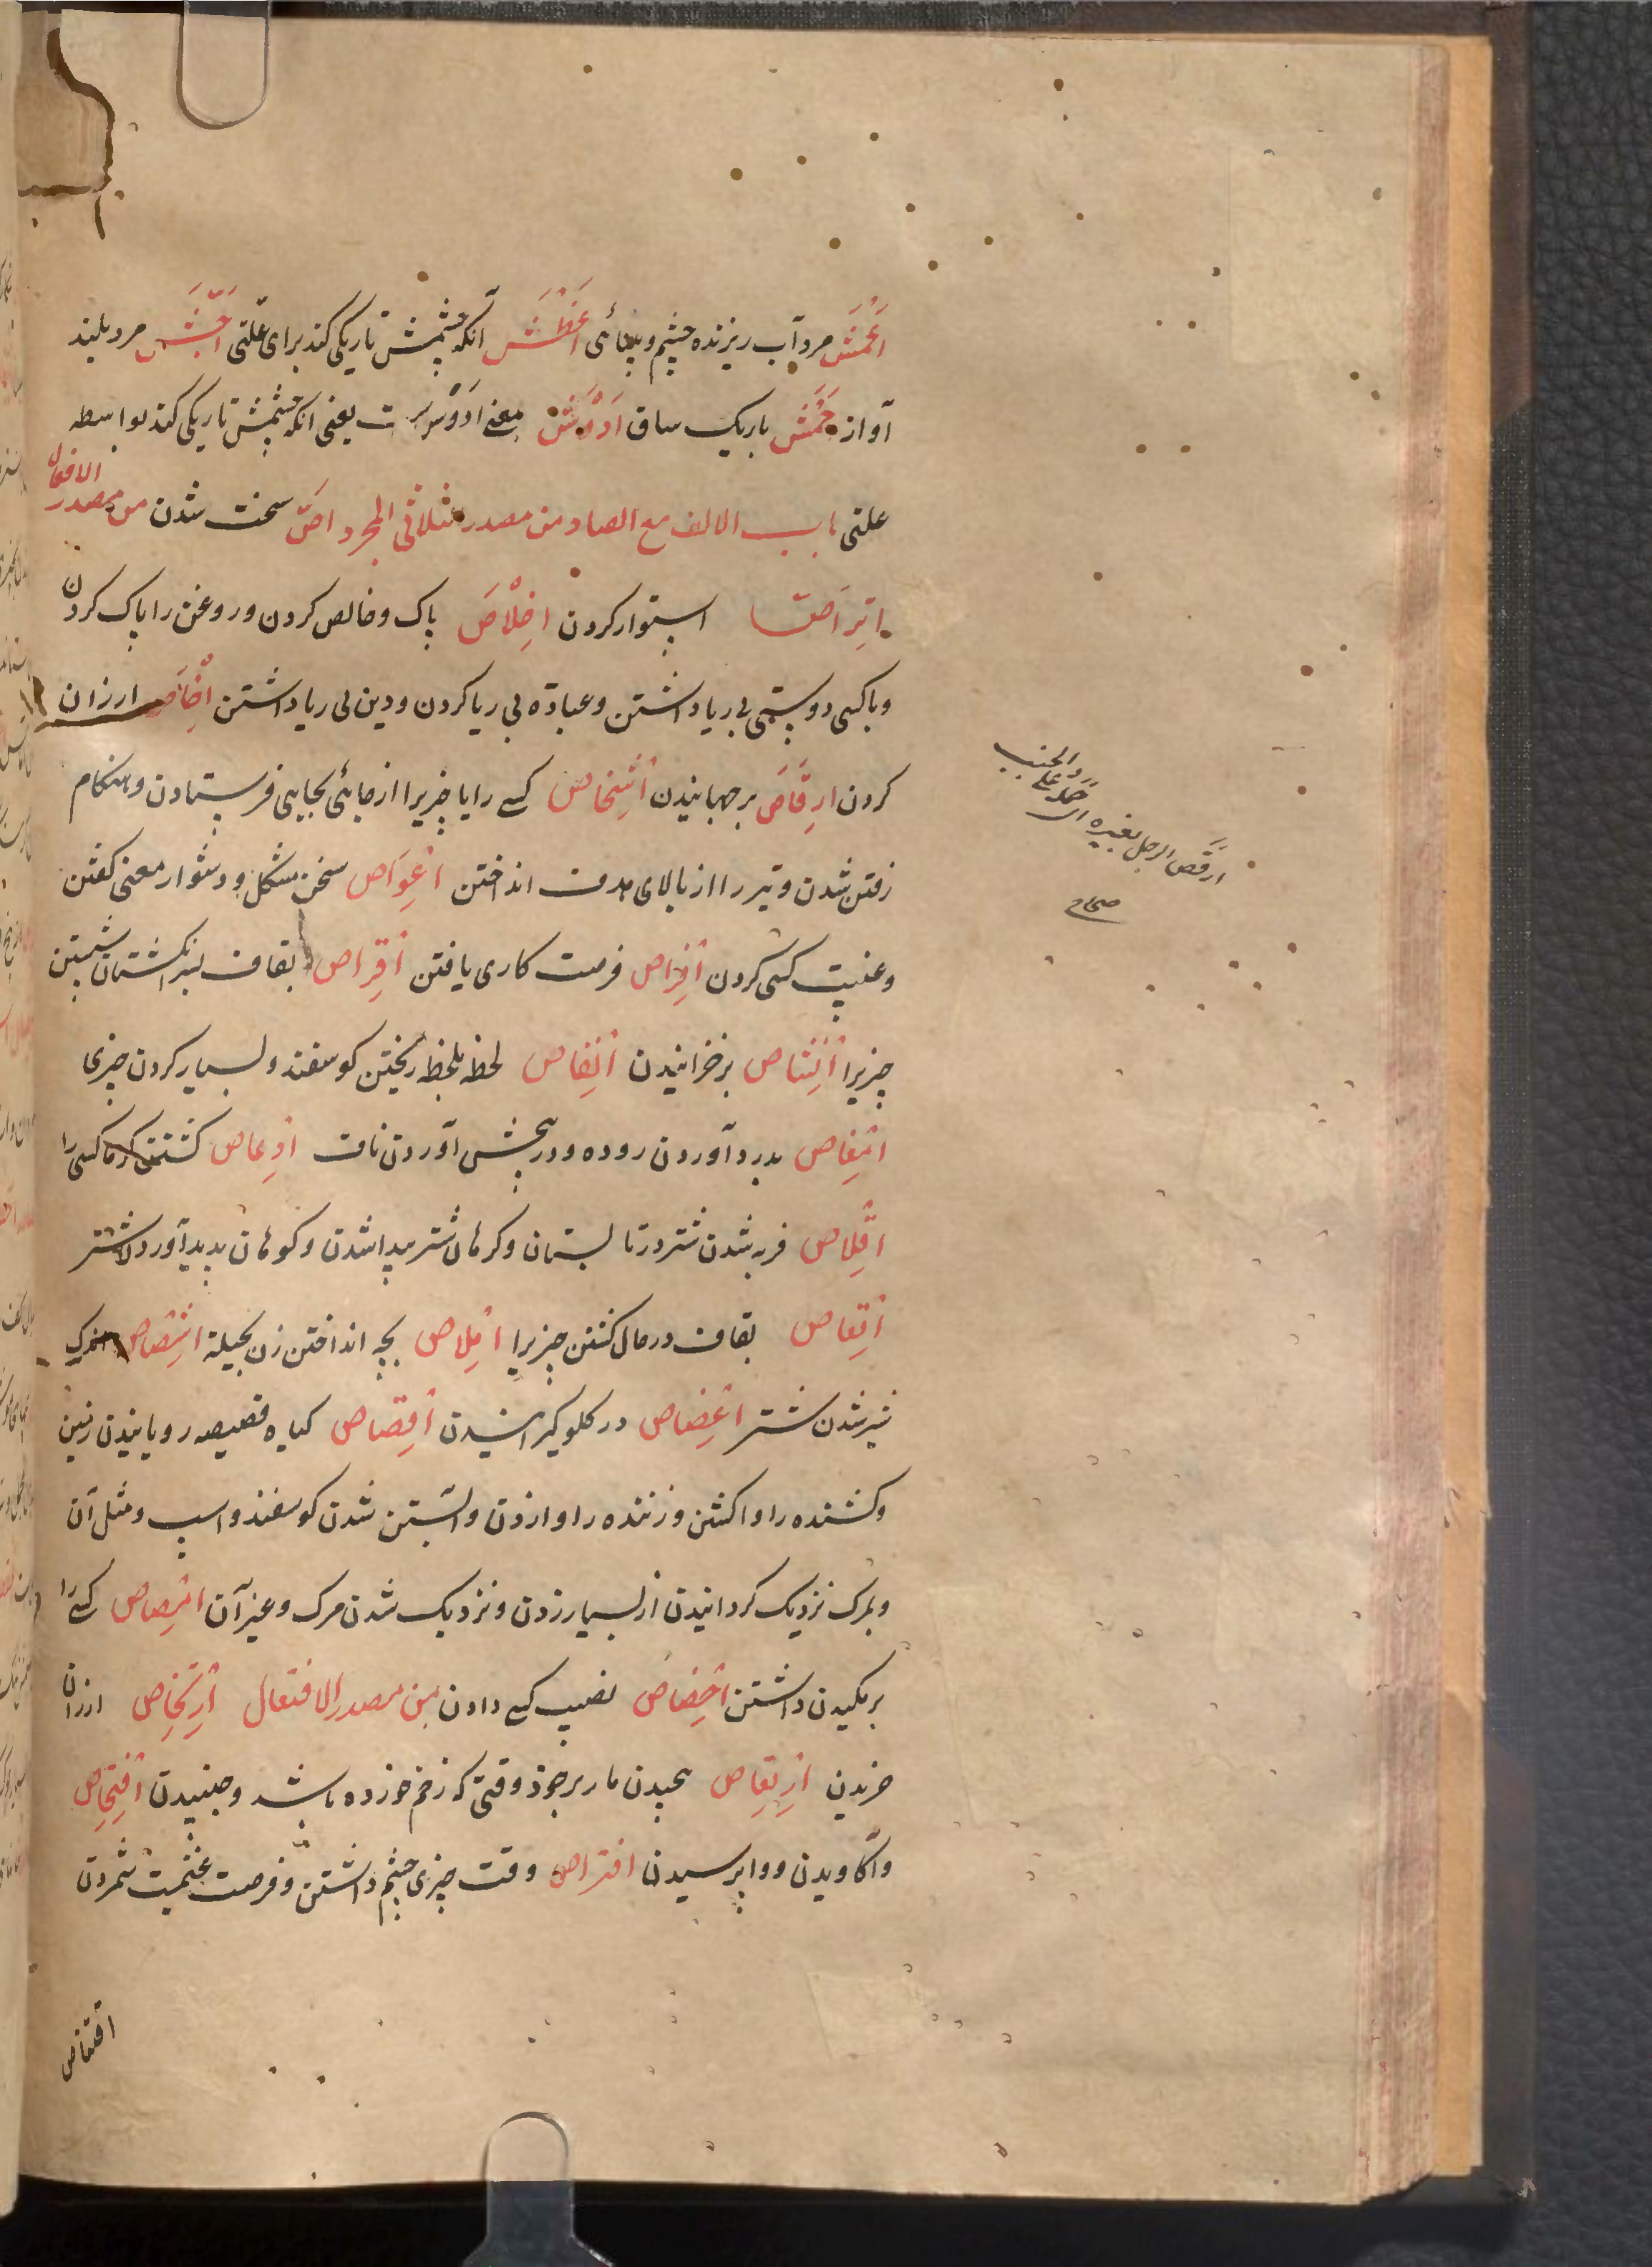 اَعْمَشْ مرد آب ریزنده چشم و بینائی اَغْطَشْ آنکه چشمش تاریکی کند برای علّتی اَجَشّ مرد بلند
آواز حَمْش باریک ساق اَدْوَش بمعنی اَدْوَس است یعنی انکه چشمش تاریکی کند بواسطه
علتی باب الالف مع الصاد من مصدر ثلاثی المجرد اَصّ سخت شدن من مصدر الافعال
اِترَاص استوار کردن اِخْلَاص پاک و خالص کردن و روغن را پاک کردن
و با کسی دوستی بی ریا داشتن و عبادة بی ریا کردن و دین بی ریا داشتن اِرْخَاص ارزان
کردن اِرقَاص برجهانیدن اِشْخَاص کسی را یا چیزیرا از جائی بجایی فرستادن و هنکام
رفتن شدن و تیر را از بالای هدف انداختن اِعْوَاص سخن مشکل و دشوار معنی کفتن
و غیبت کسی کردن اِفْرَاص فرصت کاری یافتن اِقْرَاص بقاف بسر انکشتان شستن
چیزیرا اِنْشَاص برخزانیدن اِنْفَاص لحظه بلحظه ریختن کوسفند و بسیار کردن چیزی
اِمْغَاص بدرد آوردن روده و در بخش آوردن ناف اِدْعَاص کشتن کرما کسی را
اِقْلَاص فربه شدن شتر در تابستان و کرهان شتر پیدا شدن و کوهان پدید آوردن شتر
اِقْعَاص بقاف در حال کشتن چیزیرا اِمْلَاص بچه انداختن زن بحیله اِشْصَاص اندک
شیر شدن شتر اِغْصَاص در کلو کیرانیدن اِقْصَاص کیاه قصیصه رویانیدن زمین
و کشنده را واکشتن و زننده را وازدن و آبستن شدن کوسفند و اسب و مثل آن
و بمرک نزدیک کردانیدن از بسیار زدن و نزدیک شدن مرک و غیر آن اِمْصَاص کسی را
بر مکیدن داشتن اِحْصَاص نصیب کسی دادن من مصدر الافتعال اِرْتِخَاص ارزان
خریدن اِرْتِعَاص پیچیدن مار بر خود وقتی که زخم خورده باشد و جنبیدن اِفْتِحَاص
واکاویدن و واپرسیدن افتراص وقت چیزی چشم داشتن و فرصت غنیمت شمردن
اقتناص
ارقَص الرجل بعیره ای حمله علی الخبب
صحاح